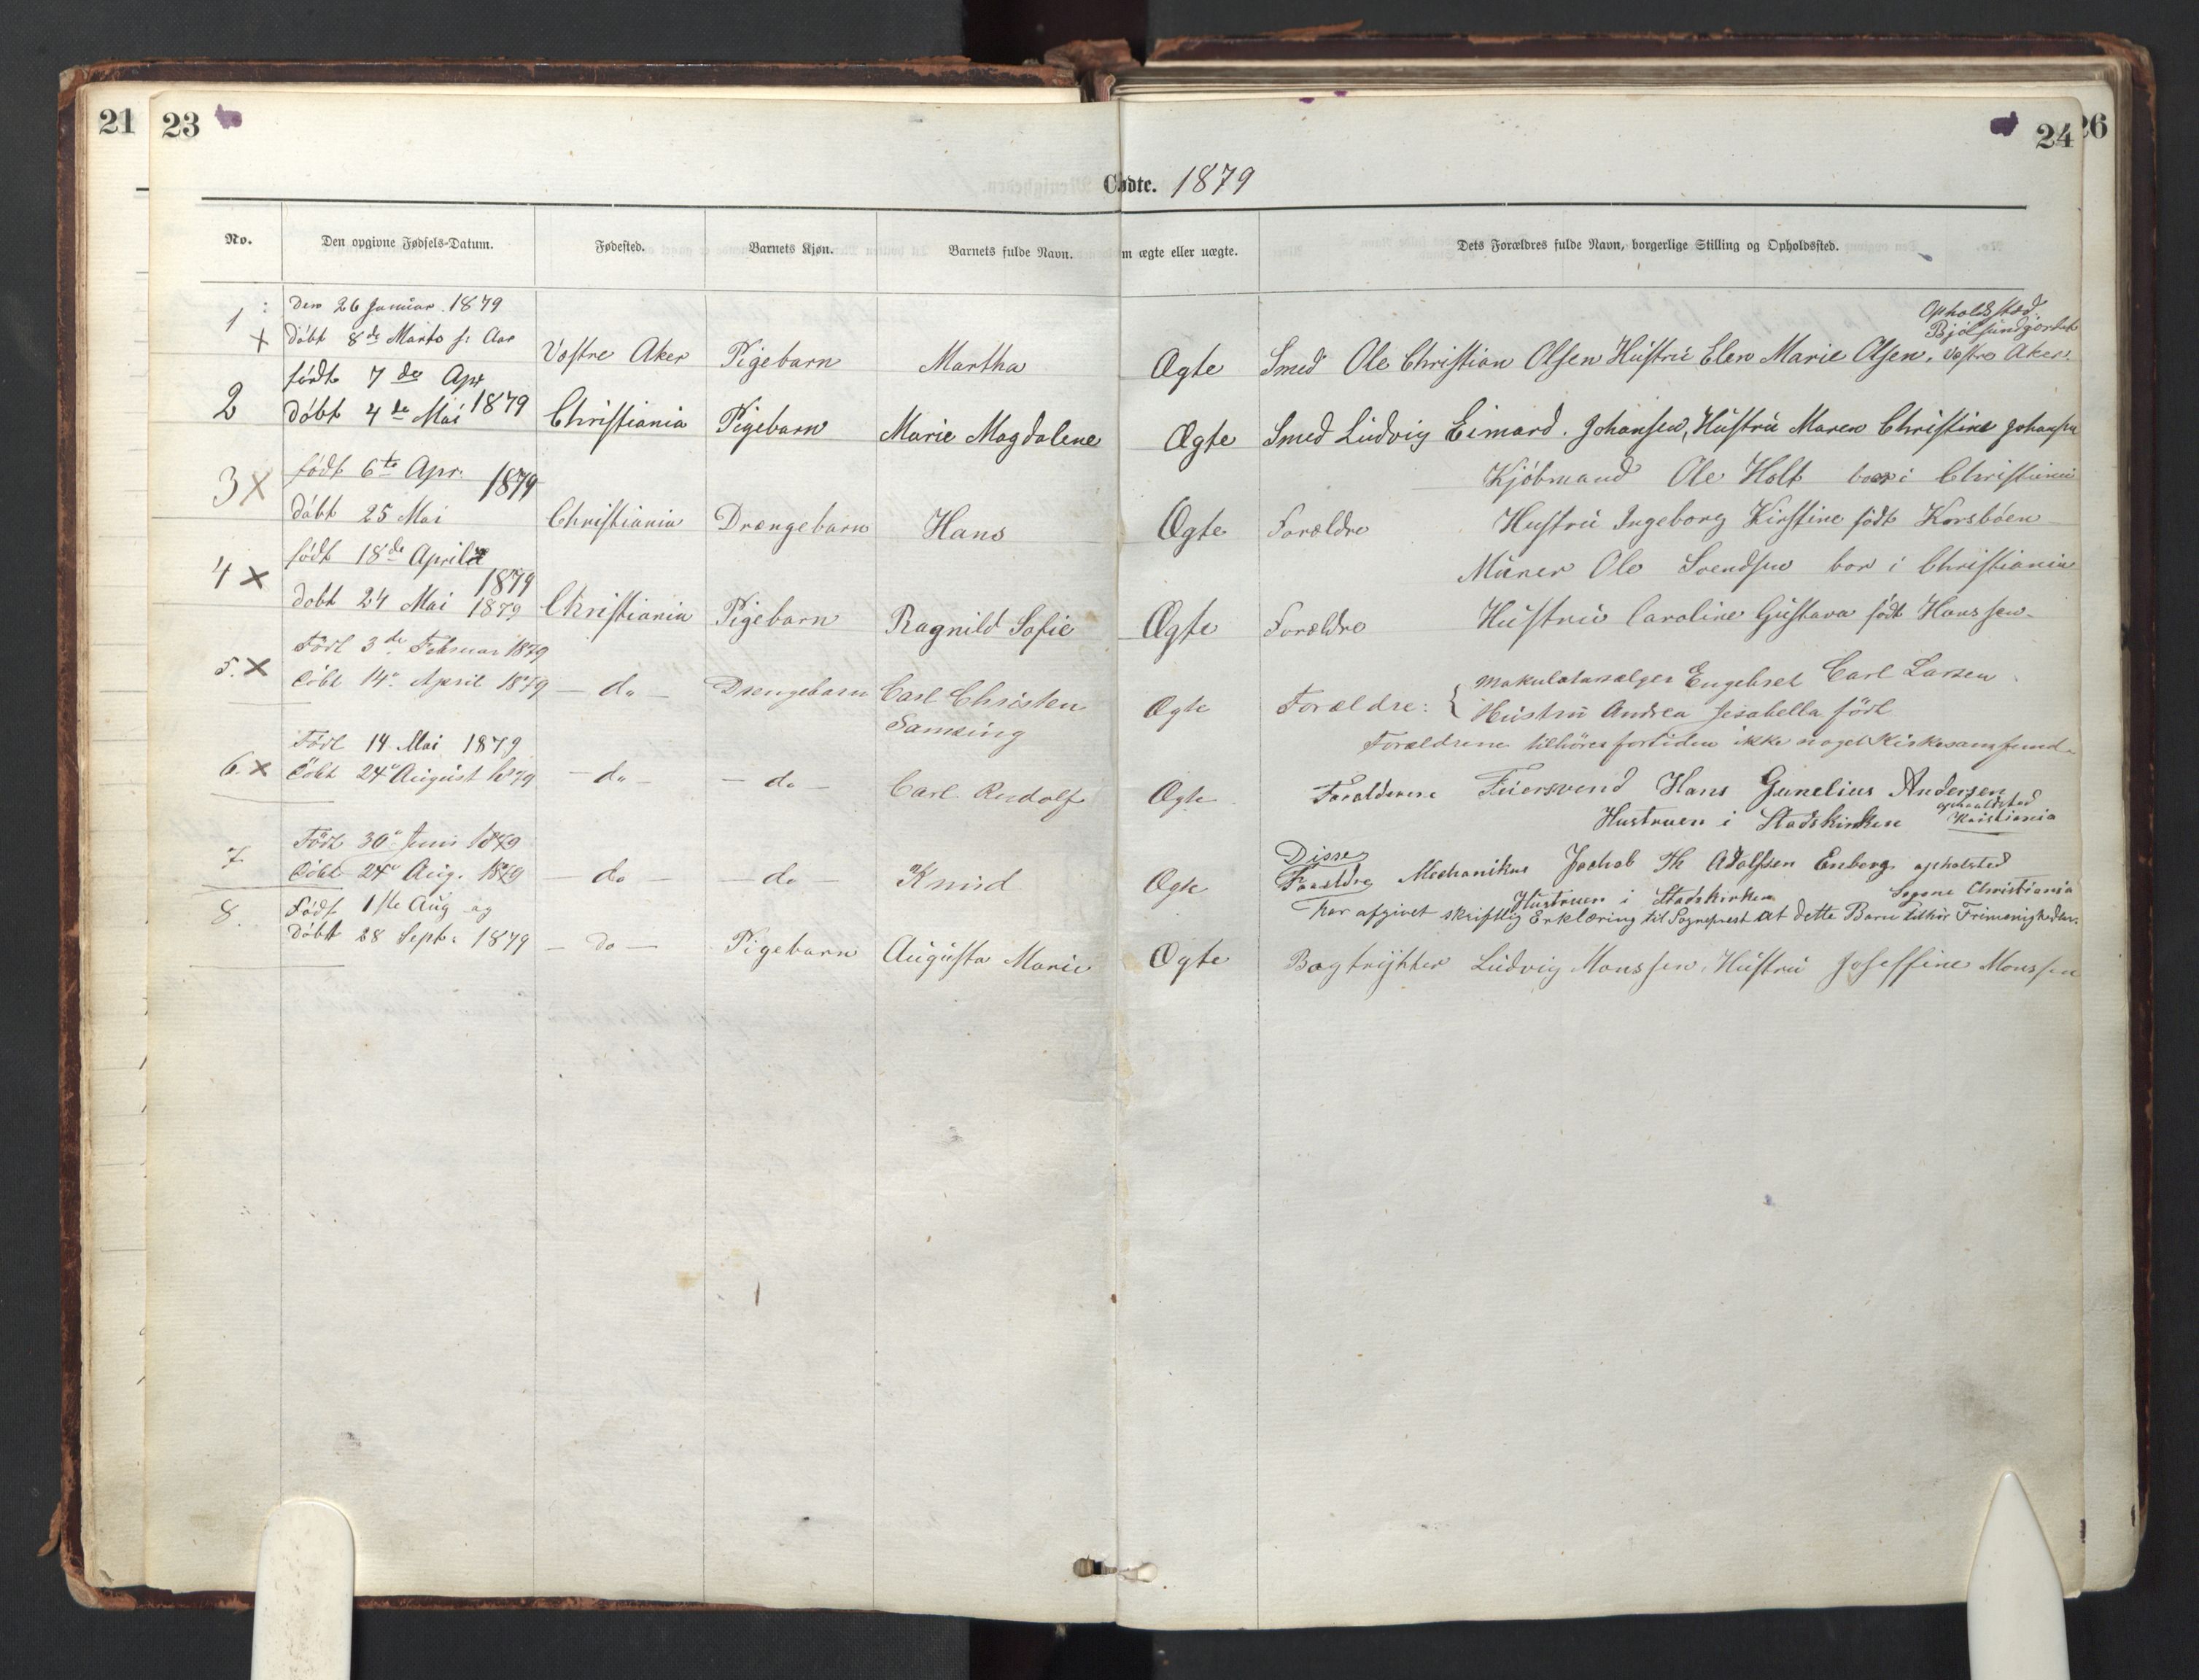 21 23
24 26
Fødte. 1879
No. Den opgivne Fødsels-Datum. Fødested. Barnets Kjøn. Barnets fulde Navn. m ægte eller uægte. Dets Forældres fulde Navn, borgerlige Stilling og Opholdssted.
1 den 26 Januar 1879
X døbt 8de Marts s: Aar Vestre Aker Pigebarn Martha Ægte Smed Ole Christian Olsen Hustru Elen Marie Olsen, Vestre Aker
Opholdssted
født 7de Apr
2 døbt 4de Mai 1879 Christiania Pigebarn Marie Magdalene Ægte Smed Ludvig Eimard. Johansen, Hustru Maren Christine Johansen
3 X født 6te Apr. 1879 Kjøbmand Ole Holt bor i Christiania
døbt 25 Mai Christiania Drængebarn Hans Ægte Forældre Hustru Ingeborg Kirstine født Korsbøen
4 X født 18de April 1879 Murer Ole Svendsen bor i Christiania
døbt 24 Mai 1879 Christiania Pigebarn Ragnild Sofie Ægte Forældre Hustru Caroline Gustava født Hanssen
5. X Född 3de Februar 1879
Döbt 14de April 1879 – do – Drengebarn Carl Christen Ægte Forældre: { Makulatursælger Engebret Carl Larsen
Samsing Hustru Andrea Jesabella född
Forældrene tilhörer fortiden ikke noget Kirkesamfund
6. X Född 14 Mai 1879
Döbt 24de August 1879 – do – – do – Carl Rudolf Ægte Forældrene Feiersvend Hans Gunelius Andersen
Hustruen i Stadskirken opholdsted Kristiania
7 Född 30de Juni 1879
Döbt 24de Aug. 1879 – do – – do – Knud Ægte Disse Forældre Mechanikus Jachob Th Adolfsen Enborg opholsted
Hustruen i Stadskirken Sogone Christiania
har afgivet skriftlig Erklæring til Sogneprest at dette Barn tilhör Frimenigheden.
8. Født 1ste Aug og
døbt 28 Sept: 1879 – do – Pigebarn Augusta Marie Ægte Bogtrykker Ludvig Monssen, Hustru Joseffine Monssen